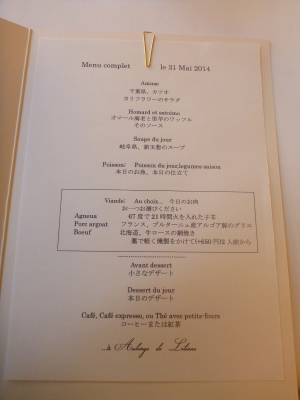 Menu complet le 31 Mai 2014
Amuse
千葉県、カツオ
カリフラワーのサラダ
Homard et satoimo
オマール海老と里芋のワッフル
そのソース
Soupe du jour
岐阜県、新玉葱のスープ
Poisson: Poisson du jour,legumes saison
本日のお魚、本日の仕立て
Viande: Au choix... 今日のお肉
お一つお選びください
Agneau 67度で21時間火を入れた子羊
Porc argoat フランス、ブルターニュ産アルゴア豚のグリエ
Boeuf 北海道、牛ロースの網焼き
藁で軽く燻製をかけて(+650円/2人前から
Avant dessert
小さなデザート
Dessert du jour
本日のデザート
Café, Café expresso, ou Thé avec petits-fours
コーヒーまたは紅茶
Auberge de Liliane